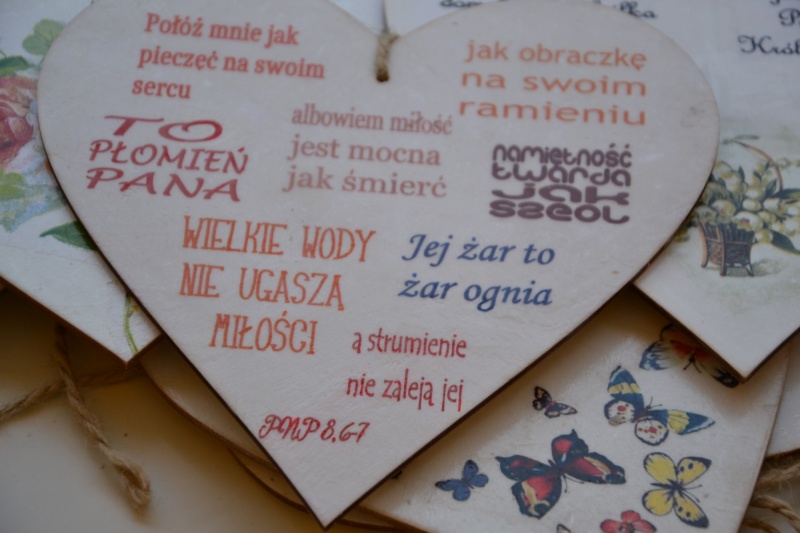 Połóż mnie jak
pieczęć na swoim
sercu
jak obraczkę
na swoim
ramieniu
albowiem miłość
jest mocna
jak śmierć
TO
PŁOMIEŃ
PANA
namiętność
twarda
jak
szeol
WIELKIE WODY
NIE UGASZĄ
MIŁOŚCI
Jej żar to
żar ognia
a strumienie
nie zaleją jej
PNP 8,6-7